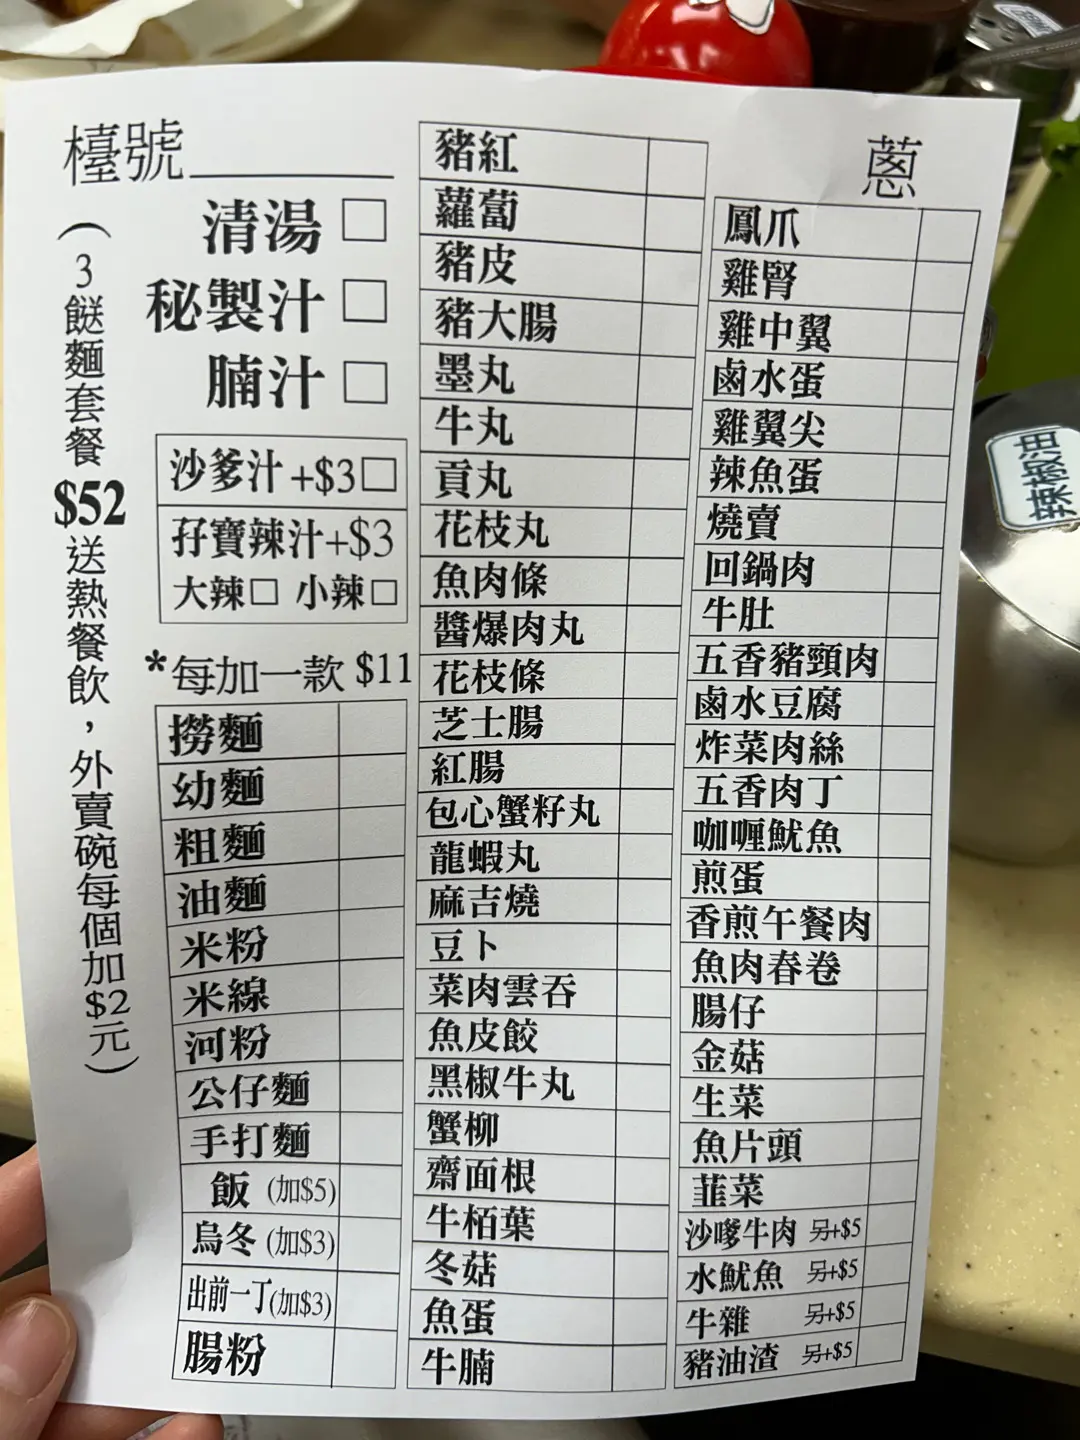 檯號
(3餸麵套餐$52送熱餐飲，外賣碗每個加$2元)
清湯 □
秘製汁 □
腩汁 □
沙爹汁+$3□
孖寶辣汁+$3
大辣□ 小辣□
*每加一款 $11
撈麵
幼麵
粗麵
油麵
米粉
米線
河粉
公仔麵
手打麵
飯 (加$5)
烏冬 (加$3)
出前一丁(加$3)
腸粉
豬紅
蘿蔔
豬皮
豬大腸
墨丸
牛丸
貢丸
花枝丸
魚肉條
醬爆肉丸
花枝條
芝士腸
紅腸
包心蟹籽丸
龍蝦丸
麻吉燒
豆卜
菜肉雲吞
魚皮餃
黑椒牛丸
蟹柳
齋面根
牛栢葉
冬菇
魚蛋
牛腩
蔥
鳳爪
雞腎
雞中翼
鹵水蛋
雞翼尖
辣魚蛋
燒賣
回鍋肉
牛肚
五香豬頸肉
鹵水豆腐
炸菜肉絲
五香肉丁
咖喱魷魚
煎蛋
香煎午餐肉
魚肉春卷
腸仔
金菇
生菜
魚片頭
韮菜
沙嗲牛肉 另+$5
水魷魚 另+$5
牛雜 另+$5
豬油渣 另+$5
辣椒油